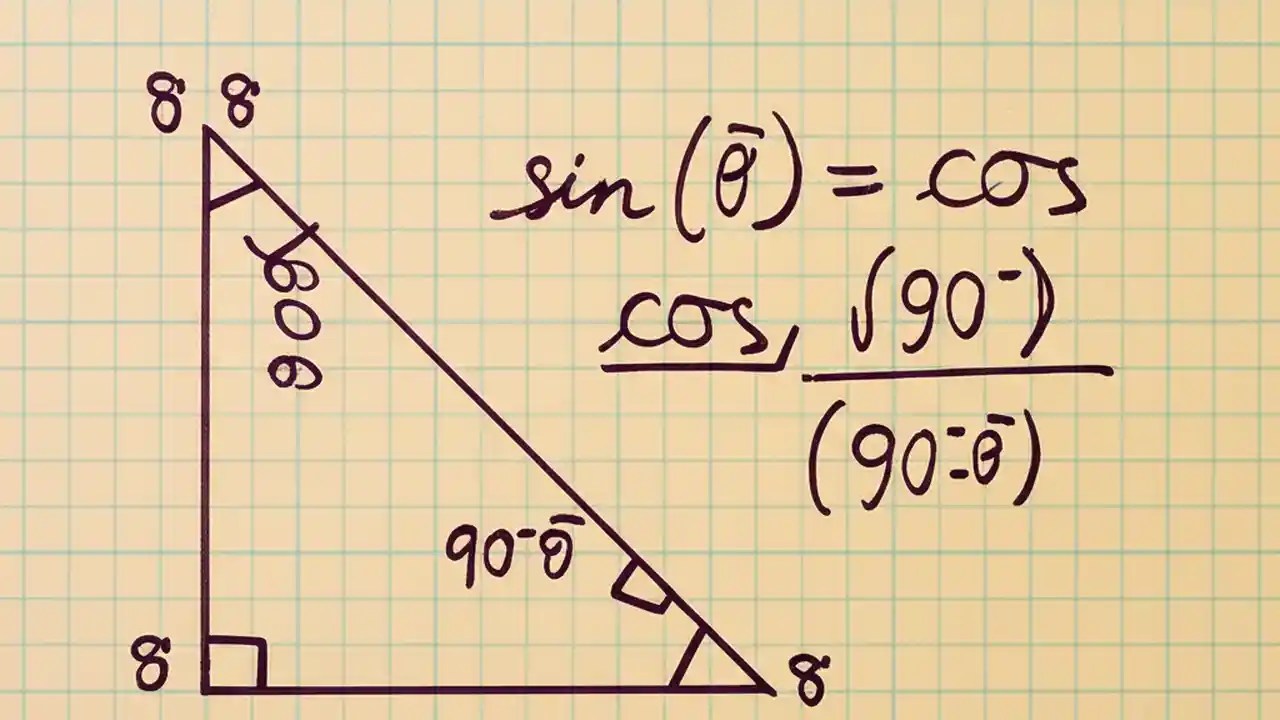 8 8
sin (θ̄) = cos
cos, √90-)
(90-θ̄)
90-θ̄
8
8